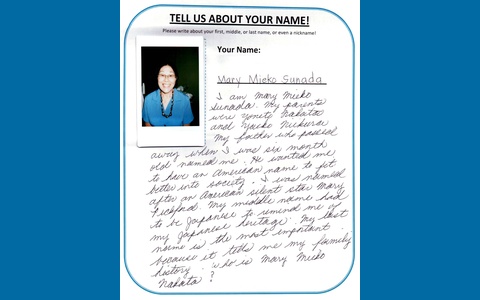 TELL US ABOUT YOUR NAME!
Please write about your first, middle, or last name, or even a nickname!
Your Name:
Mary Mieko Sunada
I am Mary Mieko
Sunada. My parents
were Yoneto Nakata
and Yaeko
My father who passed
away when I was six month
old named me. He wanted me
to have an American name to fit
better into society. I was named
after an American silent star Mary
Pickford. My middle name had
to be Japanese to remind me of
my Japanese heritage. My last
name is the most important
because it tells me my family
history. Who is Mary Mieko
Nakata?